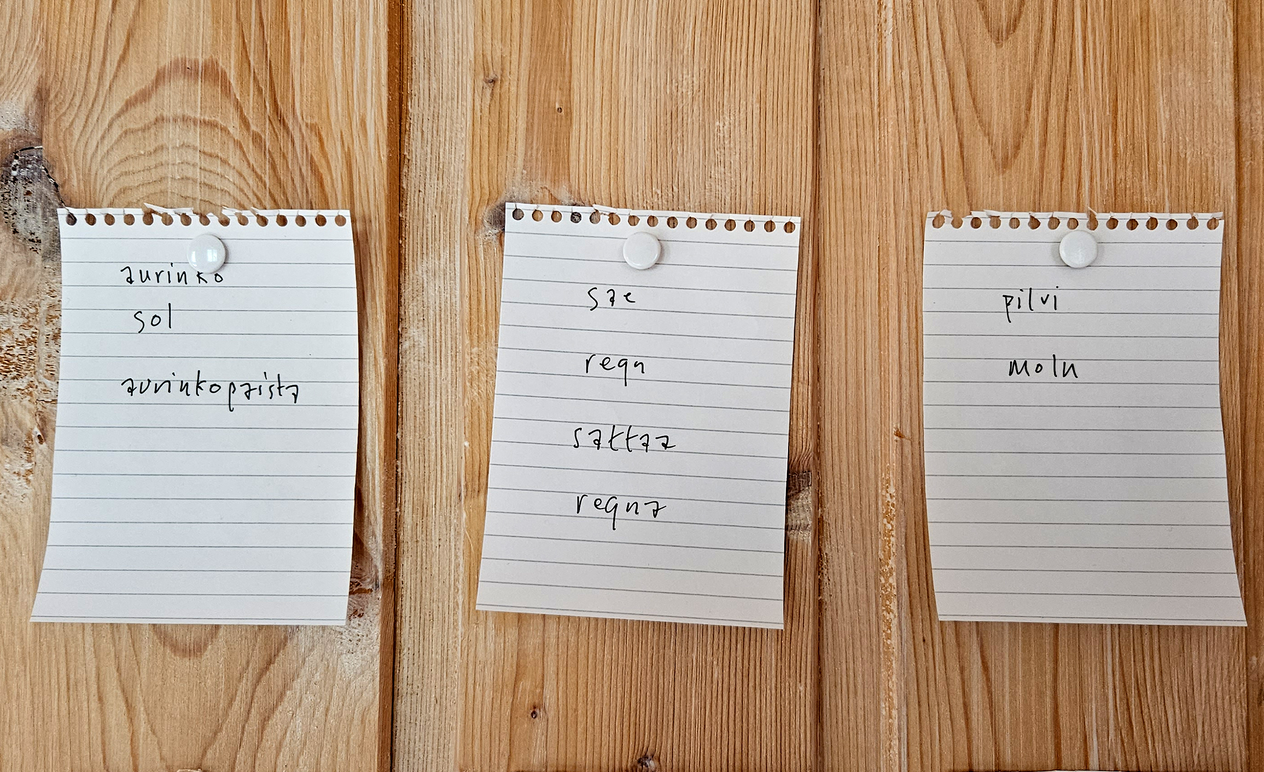 aurinko
sol
aurinkopaista
sae
regn
sattaa
regna
pilvi
moln